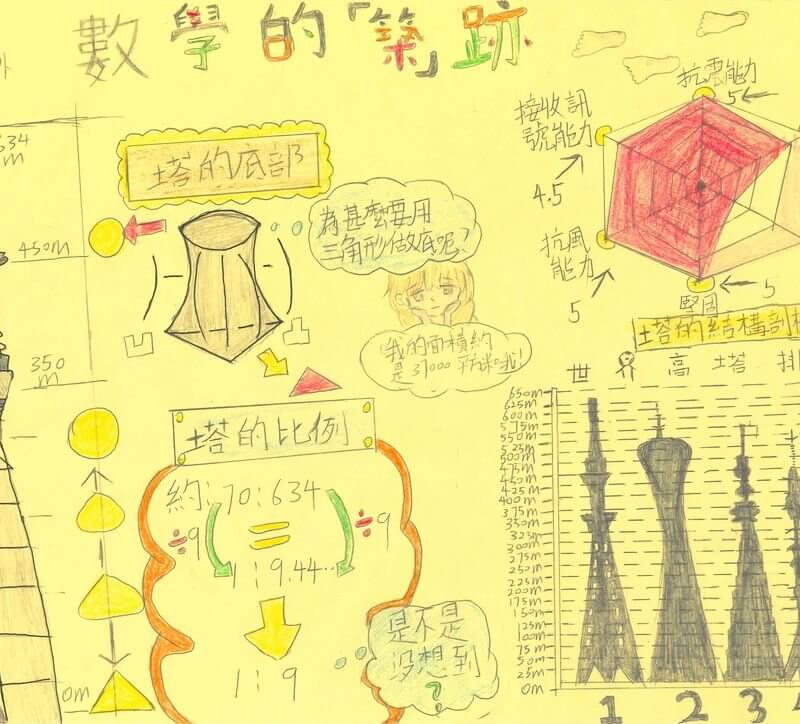 數學的「築」跡
外
634
m
450m
350
m
0m
塔的底部
為甚麼要用
三角形做底呢?
凹
凸
我的面積約
是37000平方米哦!
塔的比例
約:70:634
÷9 = ÷9
1:9.44…
1:9
是不是
沒想到
?
抗震能力
5
接收訊
號能力
4.5
抗風
能力
5
堅固
5
塔的結構剖
世
界
高塔排
650m
625m
600m
575m
550m
525m
500m
475m
450m
425m
400m
375m
350m
325m
300m
275m
250m
225m
200m
175m
150m
125m
100m
75m
50m
25m
0m
1 2 3 4